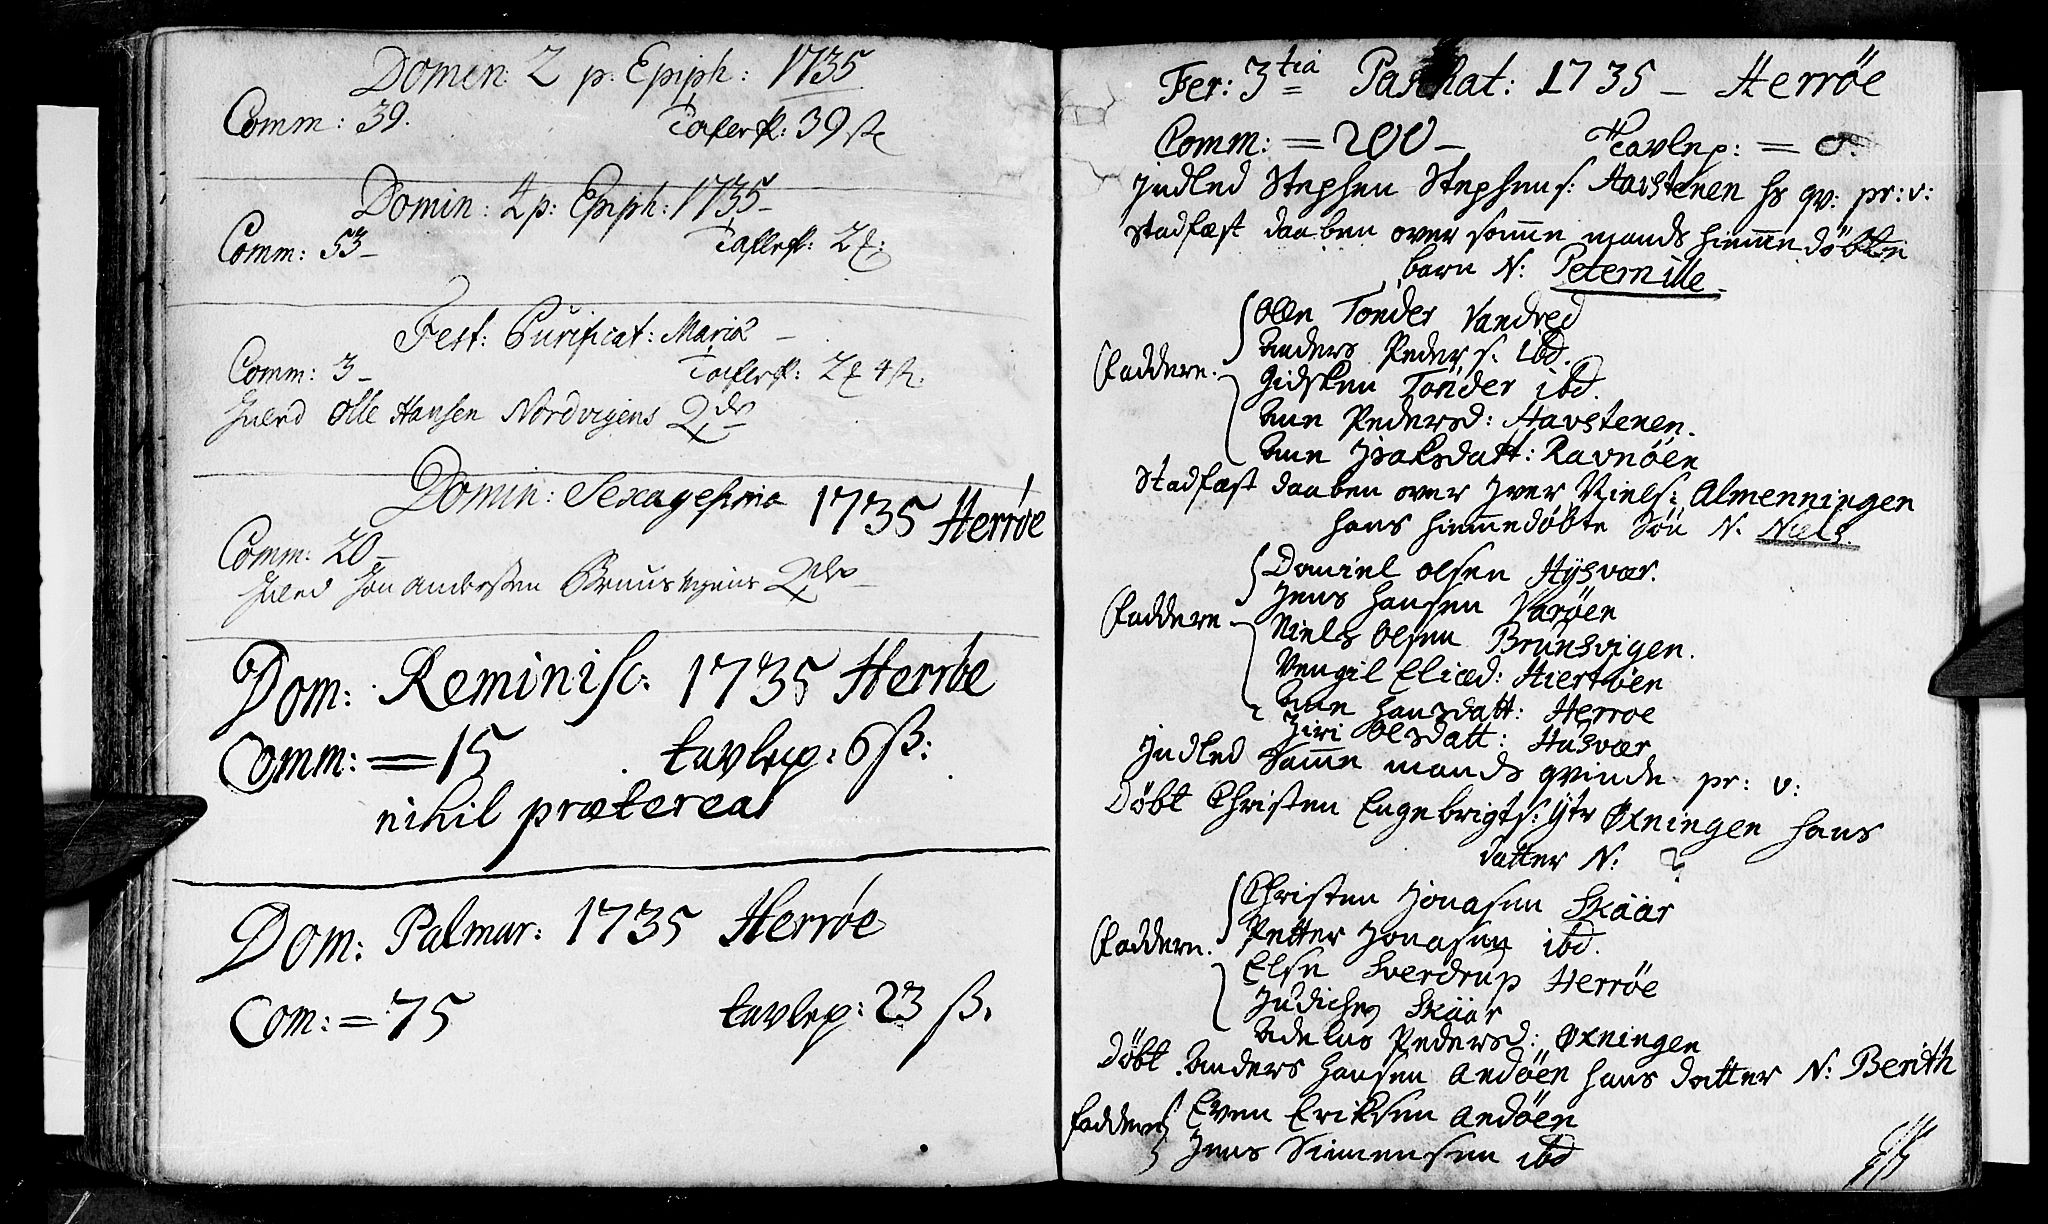 Domin: 2 p: Epiph: 1735
Comm: 39. Taflep: 39 ß
Domin: 4 p: Epiph: 1735
Comm: 53 –
Fest: Purificat: Mariæ –
Comm: 3 –
Indled Olle Hansen Nordvigens Qde
Domin: Sexagesima 1735 Herrøe
Comm: 20 –
Dom: Reminisc: 1735 Herrøe
Comm: = 15 tavlep: 6 ß:
nihil præterea
Dom: Palmar: 1735 Herrøe
Com: = 75 tavlep: 23 ß.
Fer: 3tia = Paschat: 1735 – Herrøe
Comm: = 200 – Tavlep: = 0.
Indled Stephen Stephens: Havstenen hs qv: pr: v:
Stadfæst daaben over samme mands hiemmedöbte
barn N: Peternille –
Faddere.
Ollen Tönder Vandved
Anders Peders. ibd.
Gidsken Tönder ibd.
Ane Pedersd: Havstenen.
Ane Isaksdatt: Ravnöen
Stadfæst daaben over Iver Niels: Almenningen
hans hiemmedøbte Sön N. Niels.
Faddere
Daniel Olsen Hysvær.
Jens Hansen Varöen
Niels Olsen Brunsvigen.
Vengil Eliæd: Hiertøen
Ane Hansdatt: Herroe
Ziri Olsdatt: Husvær
Indled Samme mands qvinde pr: v:
Döbt Christen Engebrigts: Ytr Øxningen hans
datter N: ?
Faddere.
Christen Jonasen Skaar
Petter Jonasen ibd.
Else Sverdrup Herrøe
Judiche Skaar
Adelus Pedersd: Øxningen
Döbt Anders Hansen Andöen hans datter N: Berith
Faddere
Even Eriksen Andöen
Jens Simensen ibd